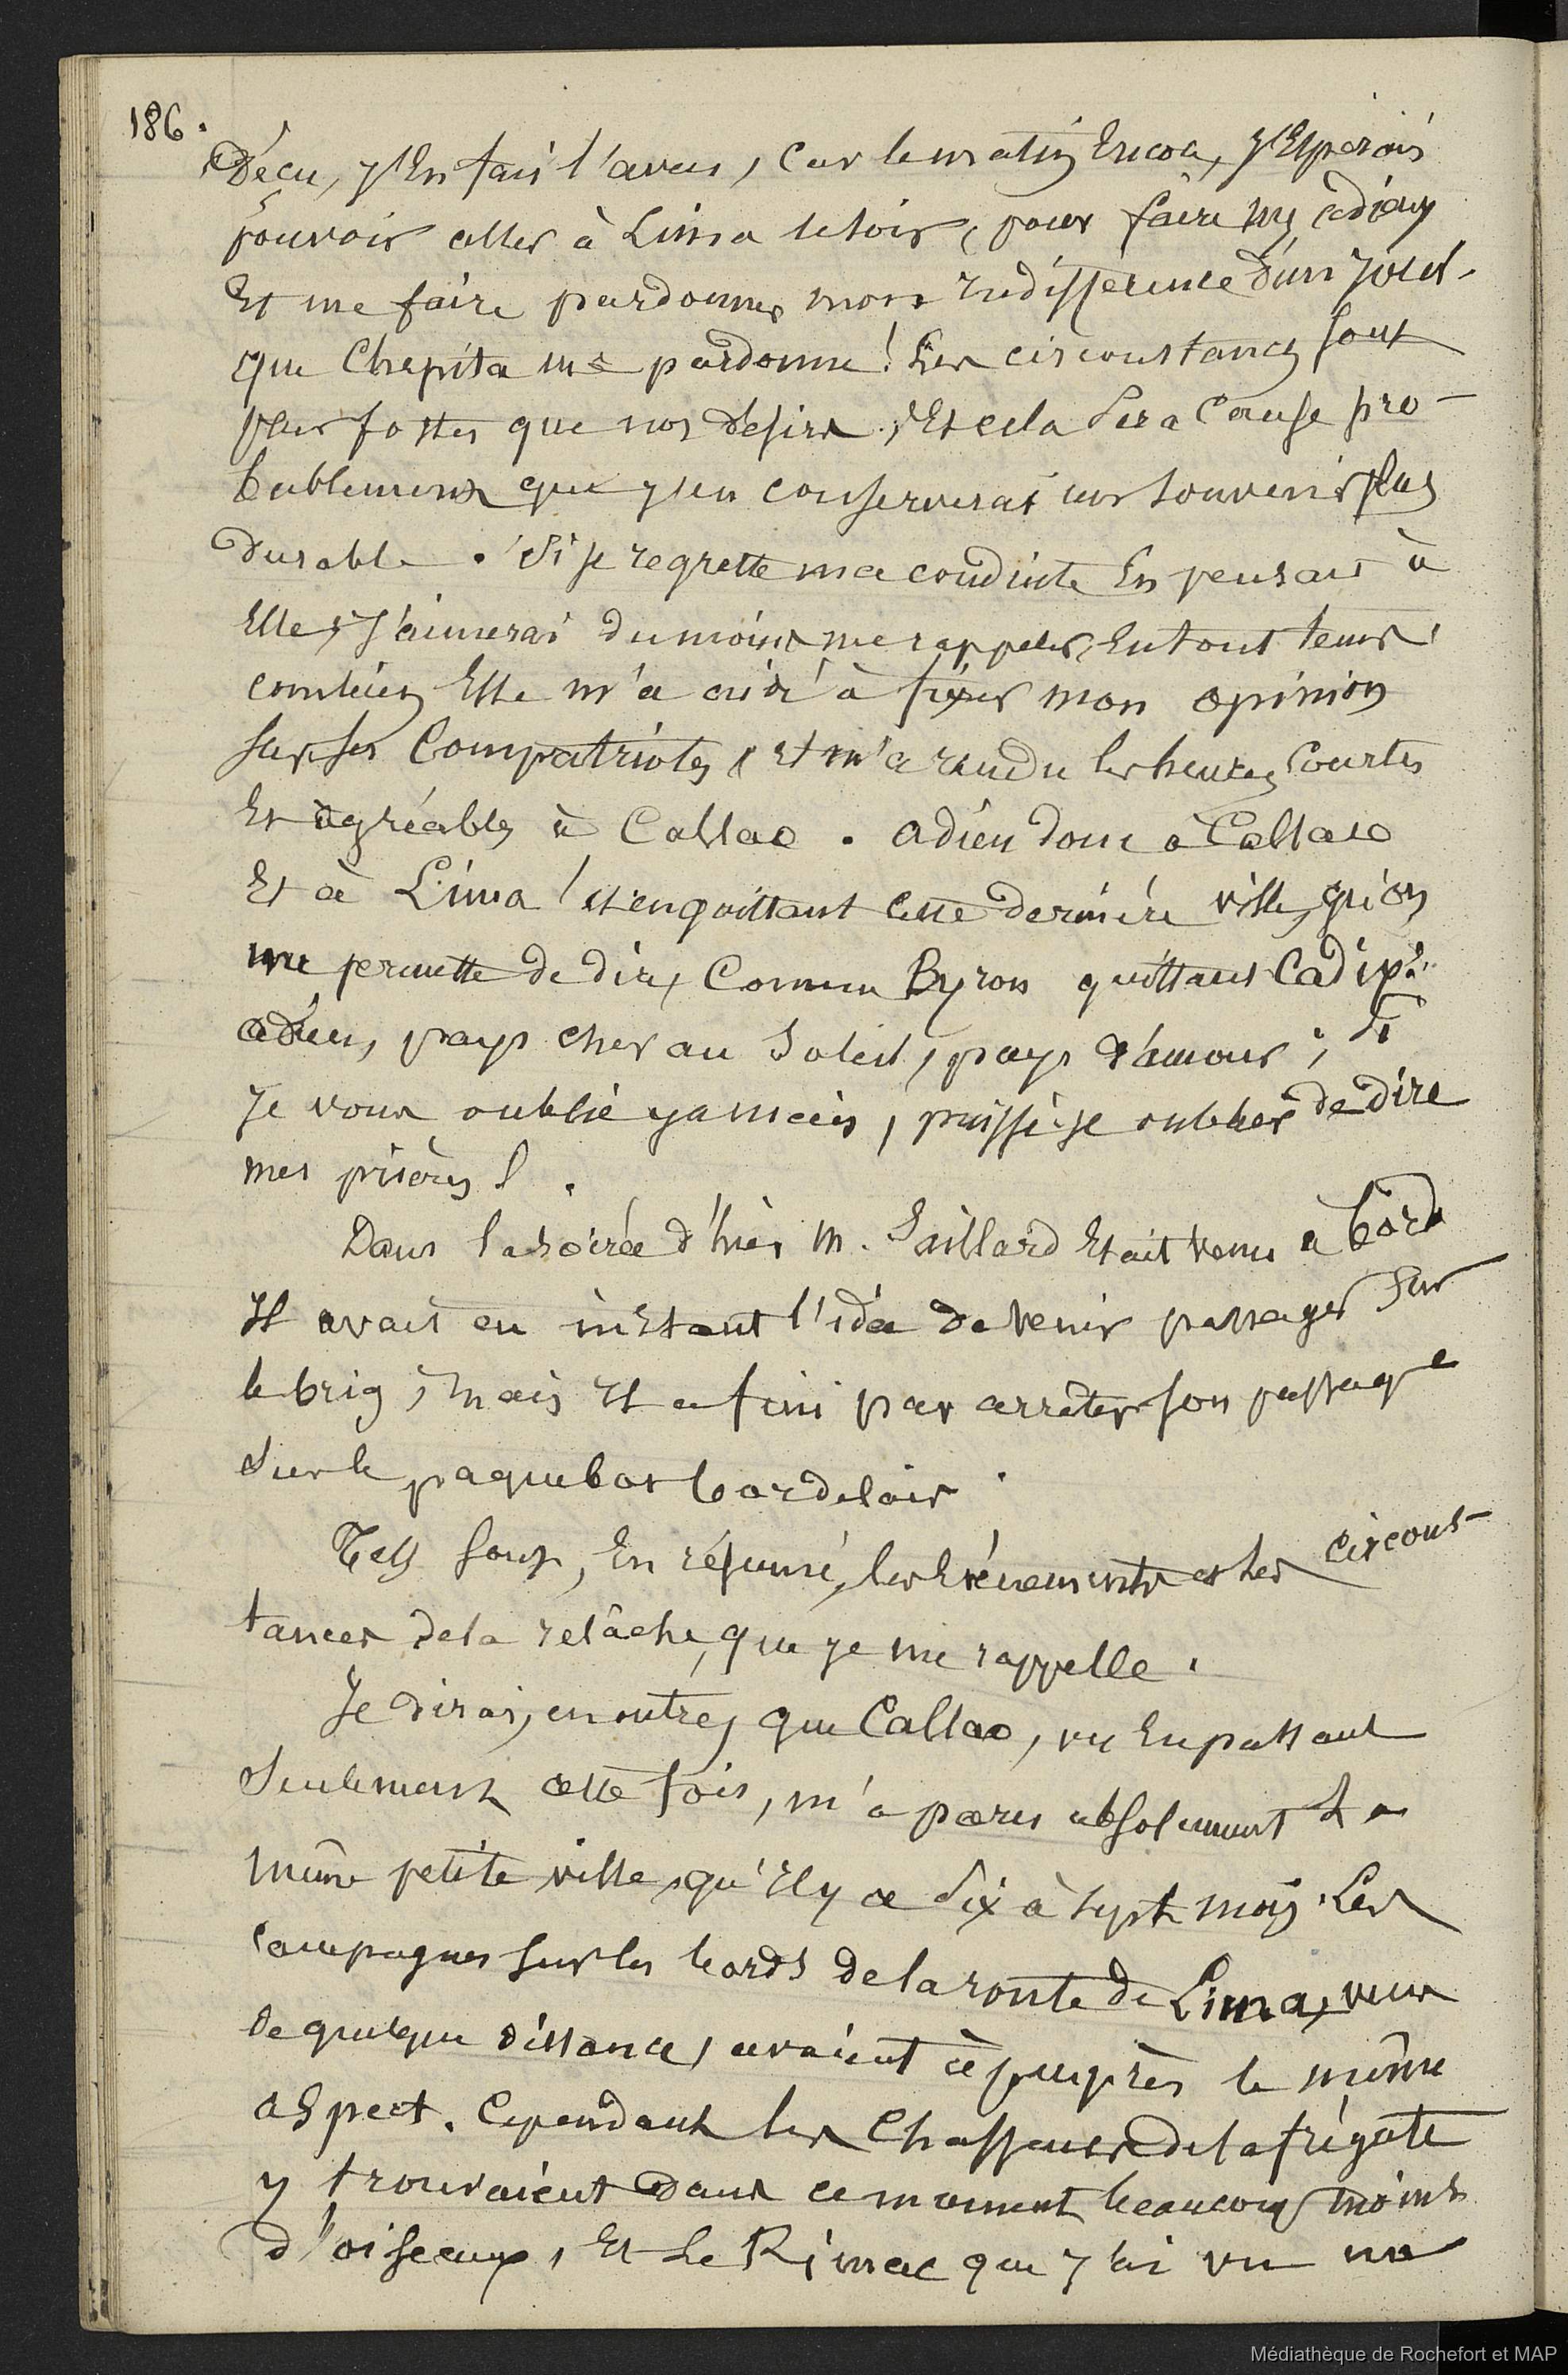 186.
Déçu, j'En fais l'aveu, Car le matin Encor, j'Espérais
pouvoir aller à Lima le soir, pour faire mes adieux
Et me faire pardonner mon Indifférence d'un jour.
Que Chepita me pardonne! Les circonstances sont
plus fortes que nos désirs, Et cela sera Cause pro-
bablement que j'en conserverai un souvenir plus
durable. Si je regrette ma conduite En pensant à
Elle, J'aimerai du moins me rappeler, En tout tems,
combien Elle m'a aidé à fixer mon opinion
sur ses Compatriotes, Et m'a rendu les heures Courtes
Et agréables à Callao. adieu donc à Callao
Et à Lima! et en quittant cette dernière ville, qu'on
me permette de dire, Comme Byron quittant Cadix:
adieu, pays cher au Soleil, pays d'amour; si
Je vous oublie jamais, puissé-je oublier de dire
mes prières!.
Dans la soirée d'hier M. Gaillard Etait venu à bord
Il avait eu un instant l'idée de venir passager sur
le brig, mais Il a fini par arrêter son passage
sur le paquebot bordelais.
Tels sont, En résumé, les Evénements et les circons-
tances de la relâche, que je me rappelle.
Je dirai, en outre, que Callao, vu En passant
Seulement cette fois, m'a paru absolument La
même petite ville, qu'Il y a Six à Sept mois. Les
campagnes sur les bords de la route de Lima, vues
de quelque distance, avaient à peu près le même
aspect. Cependant les Chasseurs de la frégate
y trouvaient dans ce moment beaucoup moins
d'oiseaux, Et Le Rimac que j'ai vu un
Médiathèque de Rochefort et MAP